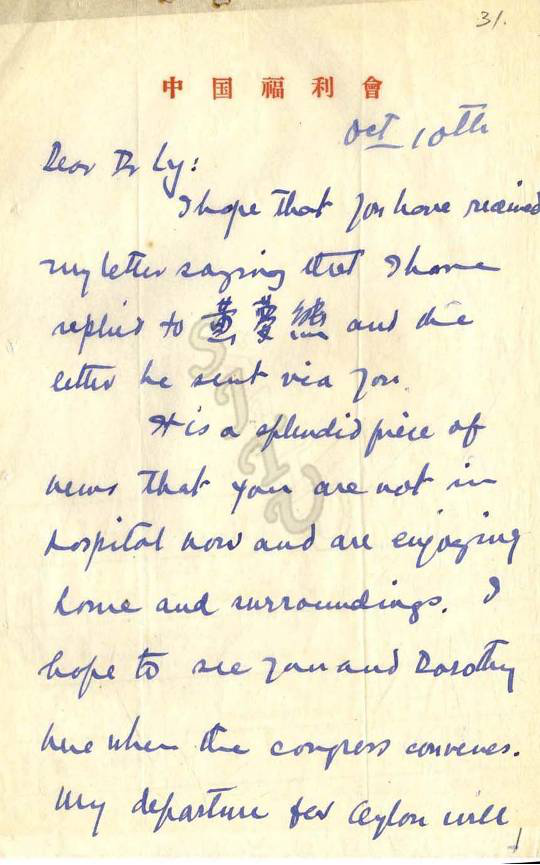 31.
中国福利會
Oct 10th
Dear Dr Ly:
I hope that you have received
my letter saying that I have
replied to 黄慶熊 and the
letter he sent via you.
It is a splendid piece of
news that you are not in
hospital now and are enjoying
home and surroundings. I
hope to see you and Dorothy
here when the congress convenes.
My departure for Ceylon will